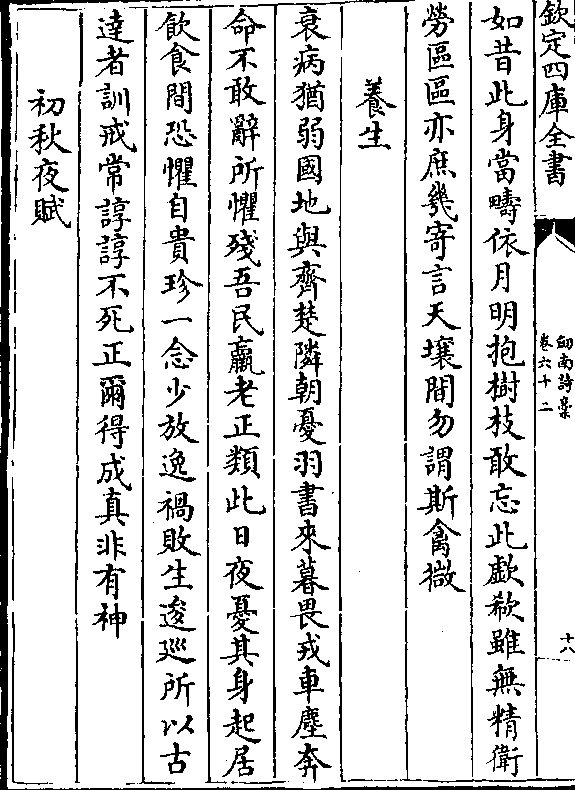 欽定四庫全書
劒南詩槀
卷六十二
十八
如昔此身當疇依月明抱樹枝敢忘此歔欷雖無精衛
勞區區亦庶㡬寄言天壤間勿謂斯禽微
養生
衰病猶弱國地與齊楚隣朝憂羽書來暮畏戎車塵奔
命不敢辭所懼殘吾民羸老正類此日夜憂其身起居
飲食間恐懼自貴珍一念少放逸禍敗生逡廵所以古
達者訓戒常諄諄不死正爾得成真非有神
初秋夜賦